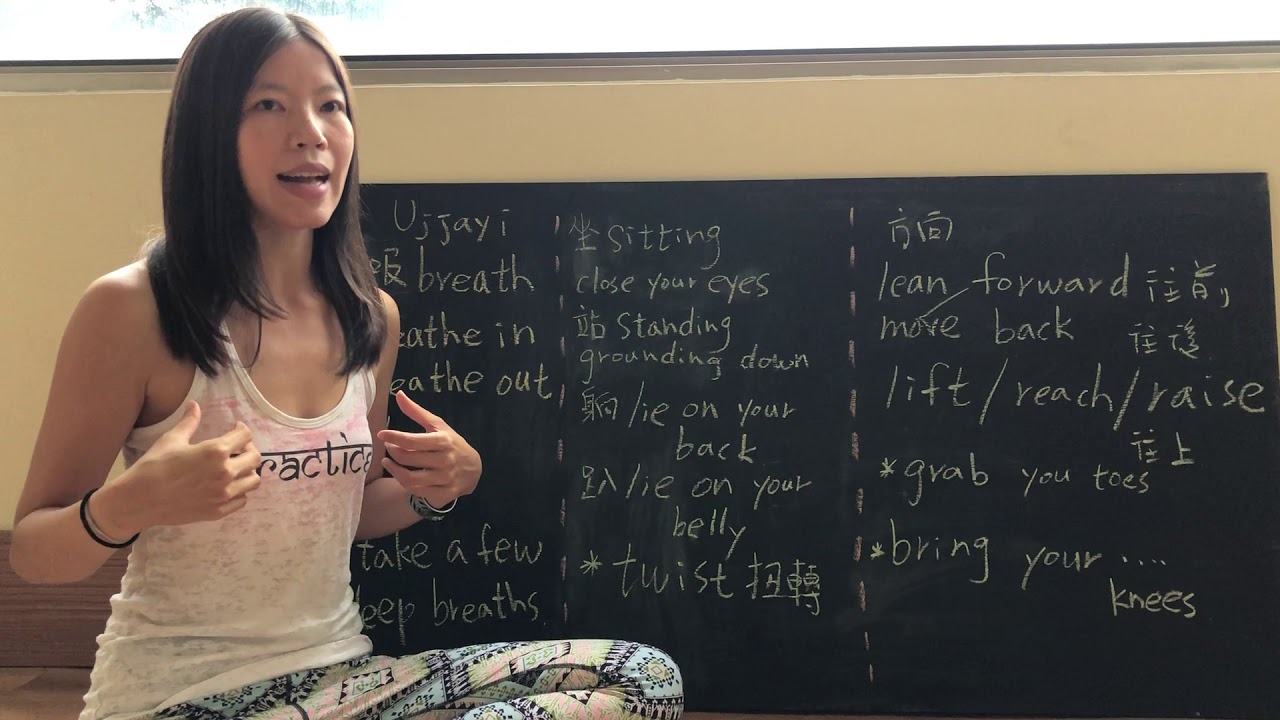 Ujjayi
breath
eathe in
eathe out
take a few
eep breaths
坐 sitting
close your eyes
站 Standing
grounding down
躺 lie on your
back
趴 lie on your
belly
* twist 扭轉
方向
lean forward 往前,
move back 往後
lift/reach/raise
往上
*grab you toes
*bring your ....
knees
ractice